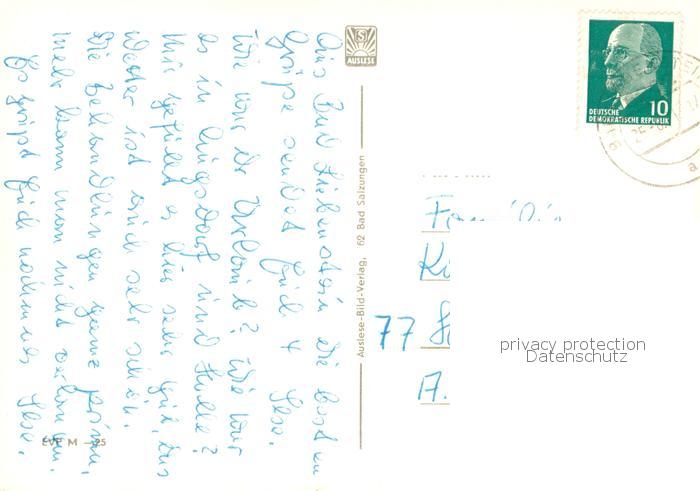 Aus Bad Liebenstein die besten
Grüße sendet Euch + Ilse.
Wie war der Urlaub? Wie war
es in Lingsdorf und Halle?
Mir gefällt es hier sehr gut, das
Wetter ist auch sehr schön.
Die Behandlungen ganz prima,
mehr kann man nicht verlangen.
Es grüßt Euch nochmals Ilse.
EVP M –.25
Auslese-Bild-Verlag, 62 Bad Salzungen
S
AUSLESE
10
DEUTSCHE
DEMOKRATISCHE REPUBLIK
a
Familie
77
A.
privacy protection
Datenschutz